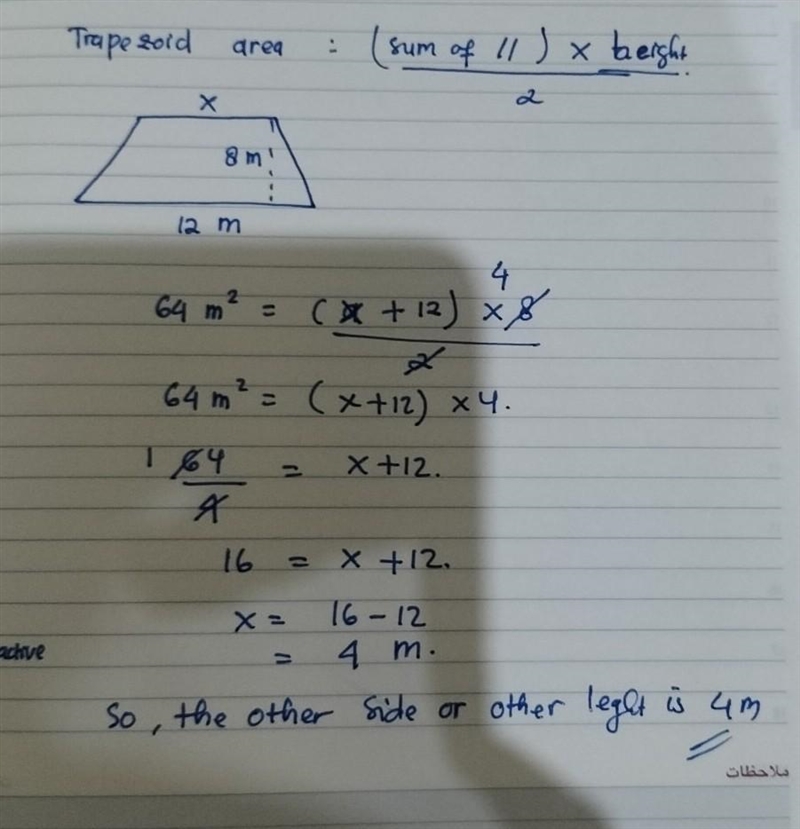 Trapezoid area : (sum of //) x height
2
x
8 m
12 m
4
64 m² = (x + 12) x 8
2
64 m² = (x+12) x4.
1 64 = x+12.
4
16 = x +12.
x = 16 - 12
active
= 4 m.
So, the other side or other leght is 4m
ملاحظات